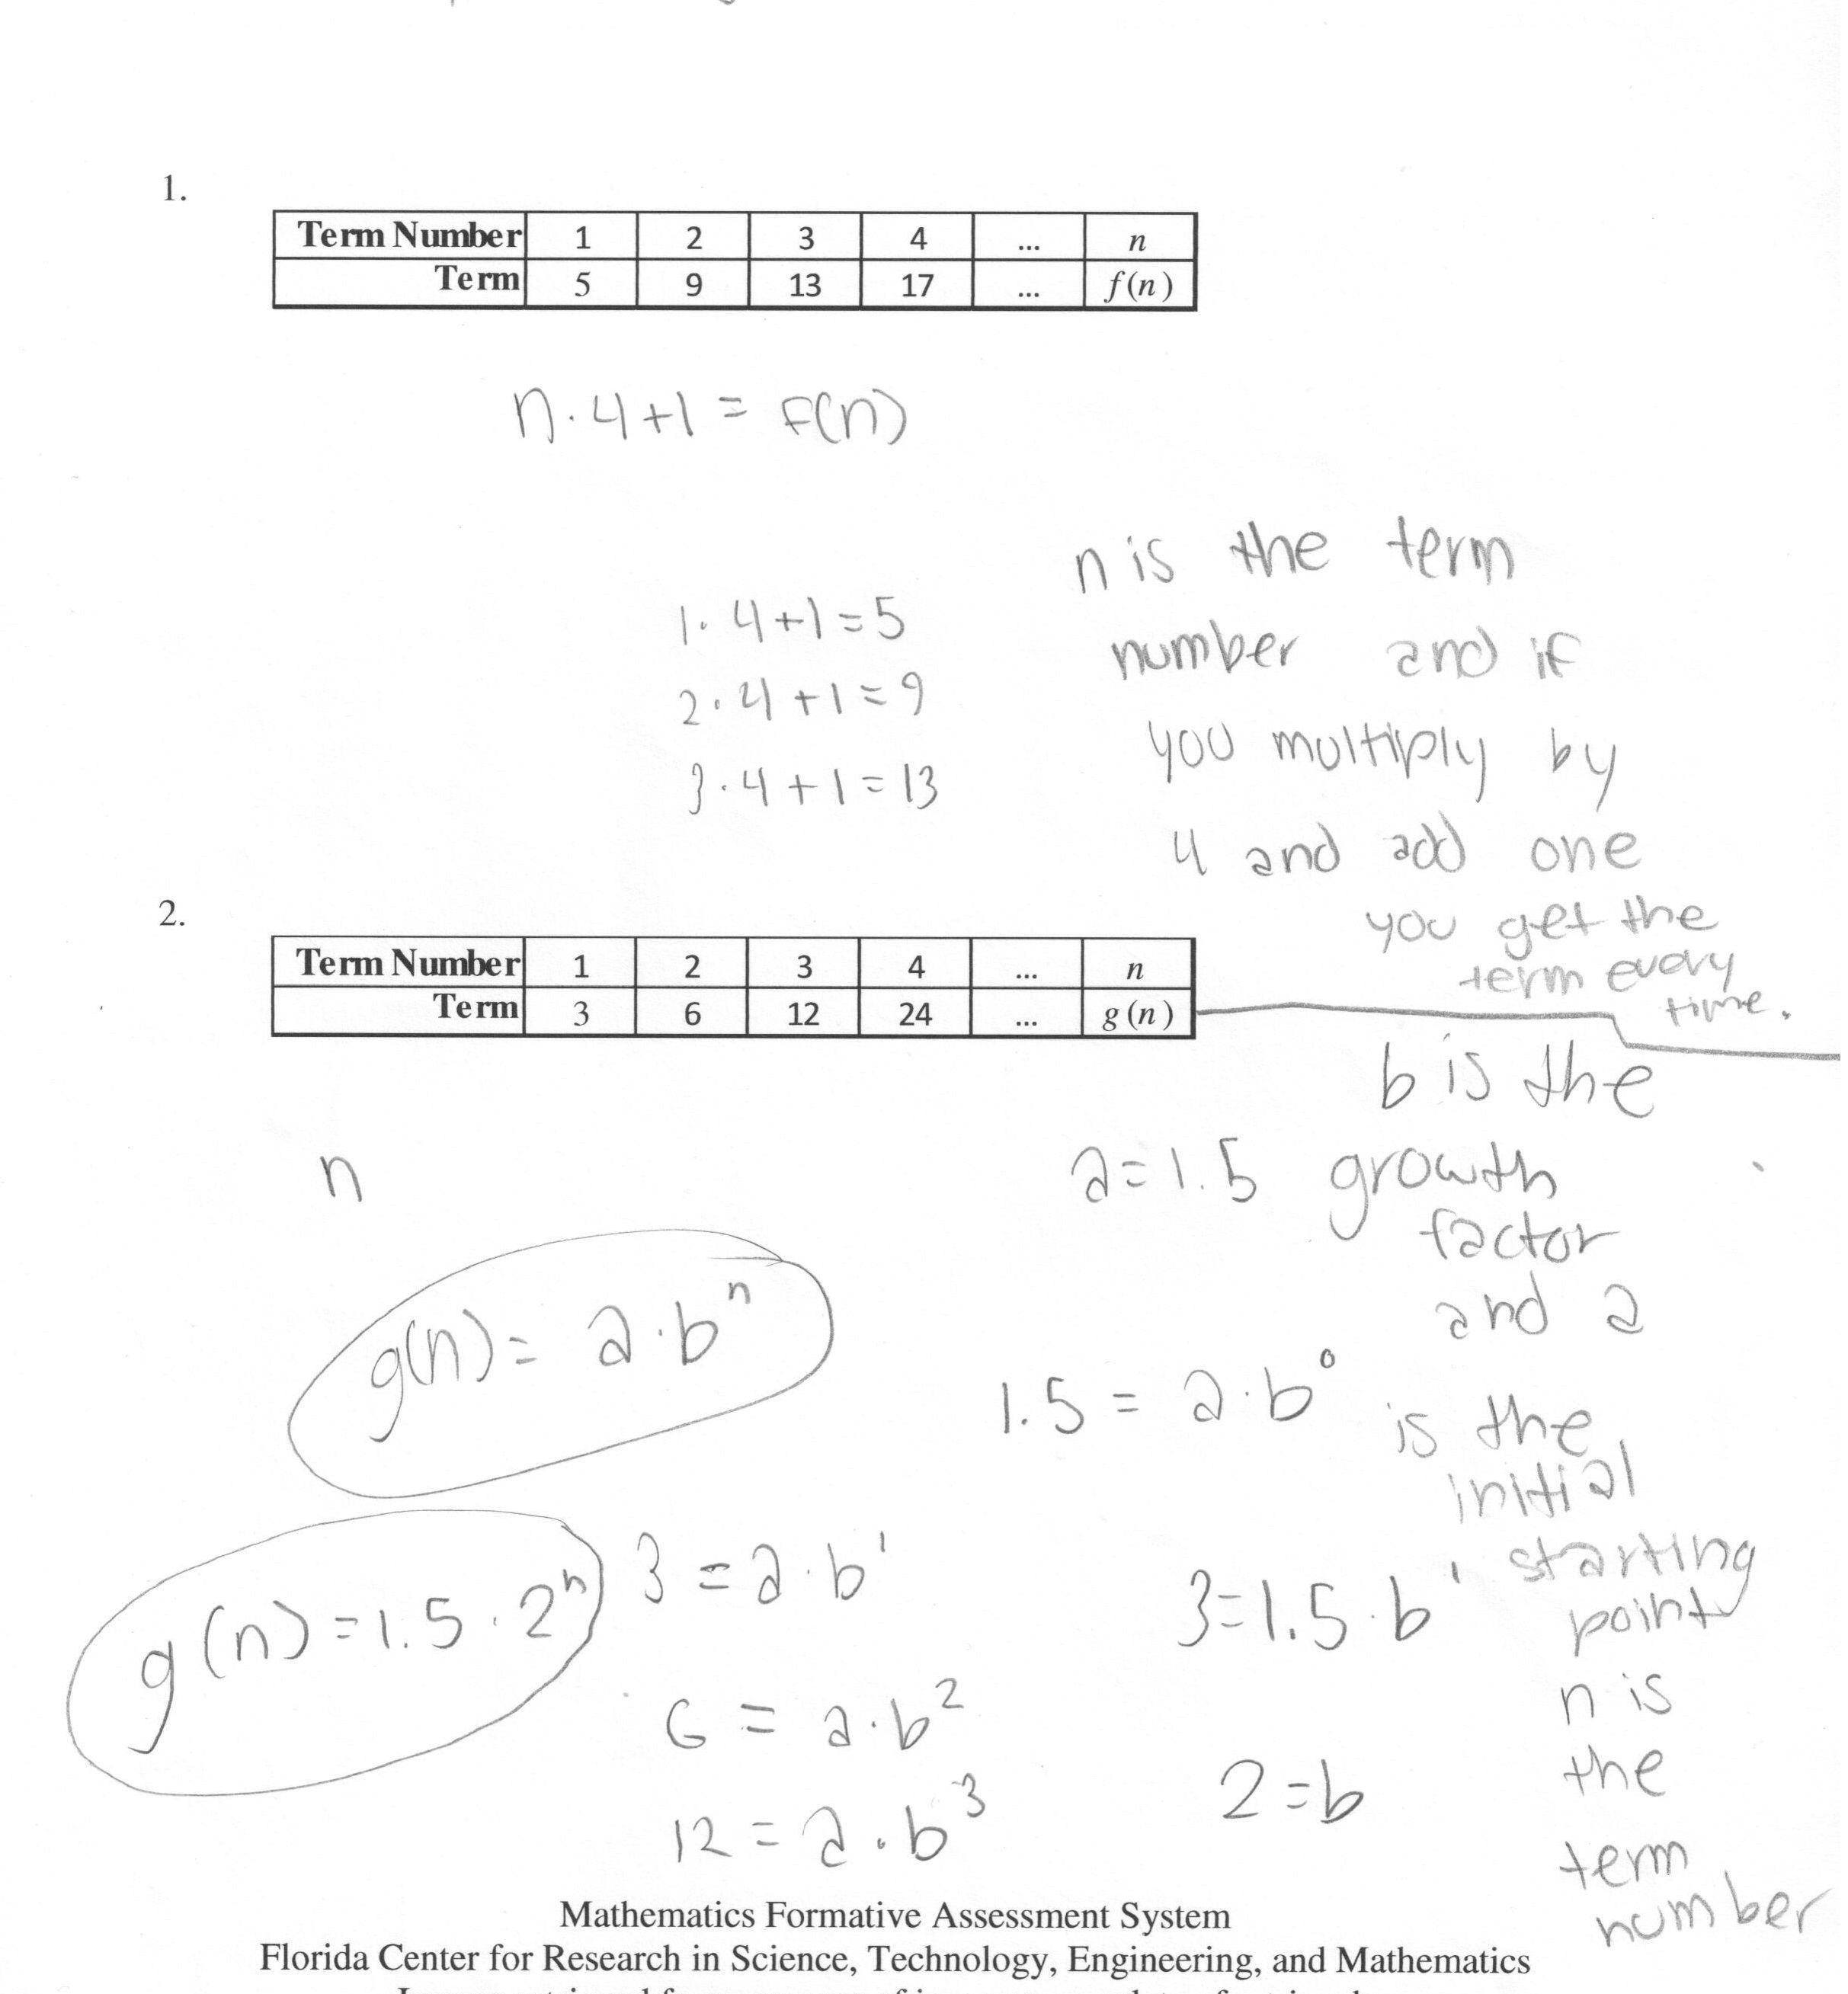 1.
Term Number 1 2 3 4 ... n
Term 5 9 13 17 ... f(n)
n·4+1 = f(n)
n is the term
number and if
you multiply by
4 and add one
you get the
term every
time.
1·4+1=5
2·4+1=9
3·4+1=13
2.
Term Number 1 2 3 4 ... n
Term 3 6 12 24 ... g(n)
n
g(n) = a·bⁿ
g(n) = 1.5·2ⁿ
3 = a·b¹
6 = a·b²
12 = a·b³
a=1.5
1.5 = a·b⁰
3=1.5·b¹
2=b
b is the
growth
factor
and a
is the
initial
starting
point
n is
the
term
number
Mathematics Formative Assessment System
Florida Center for Research in Science, Technology, Engineering, and Mathematics